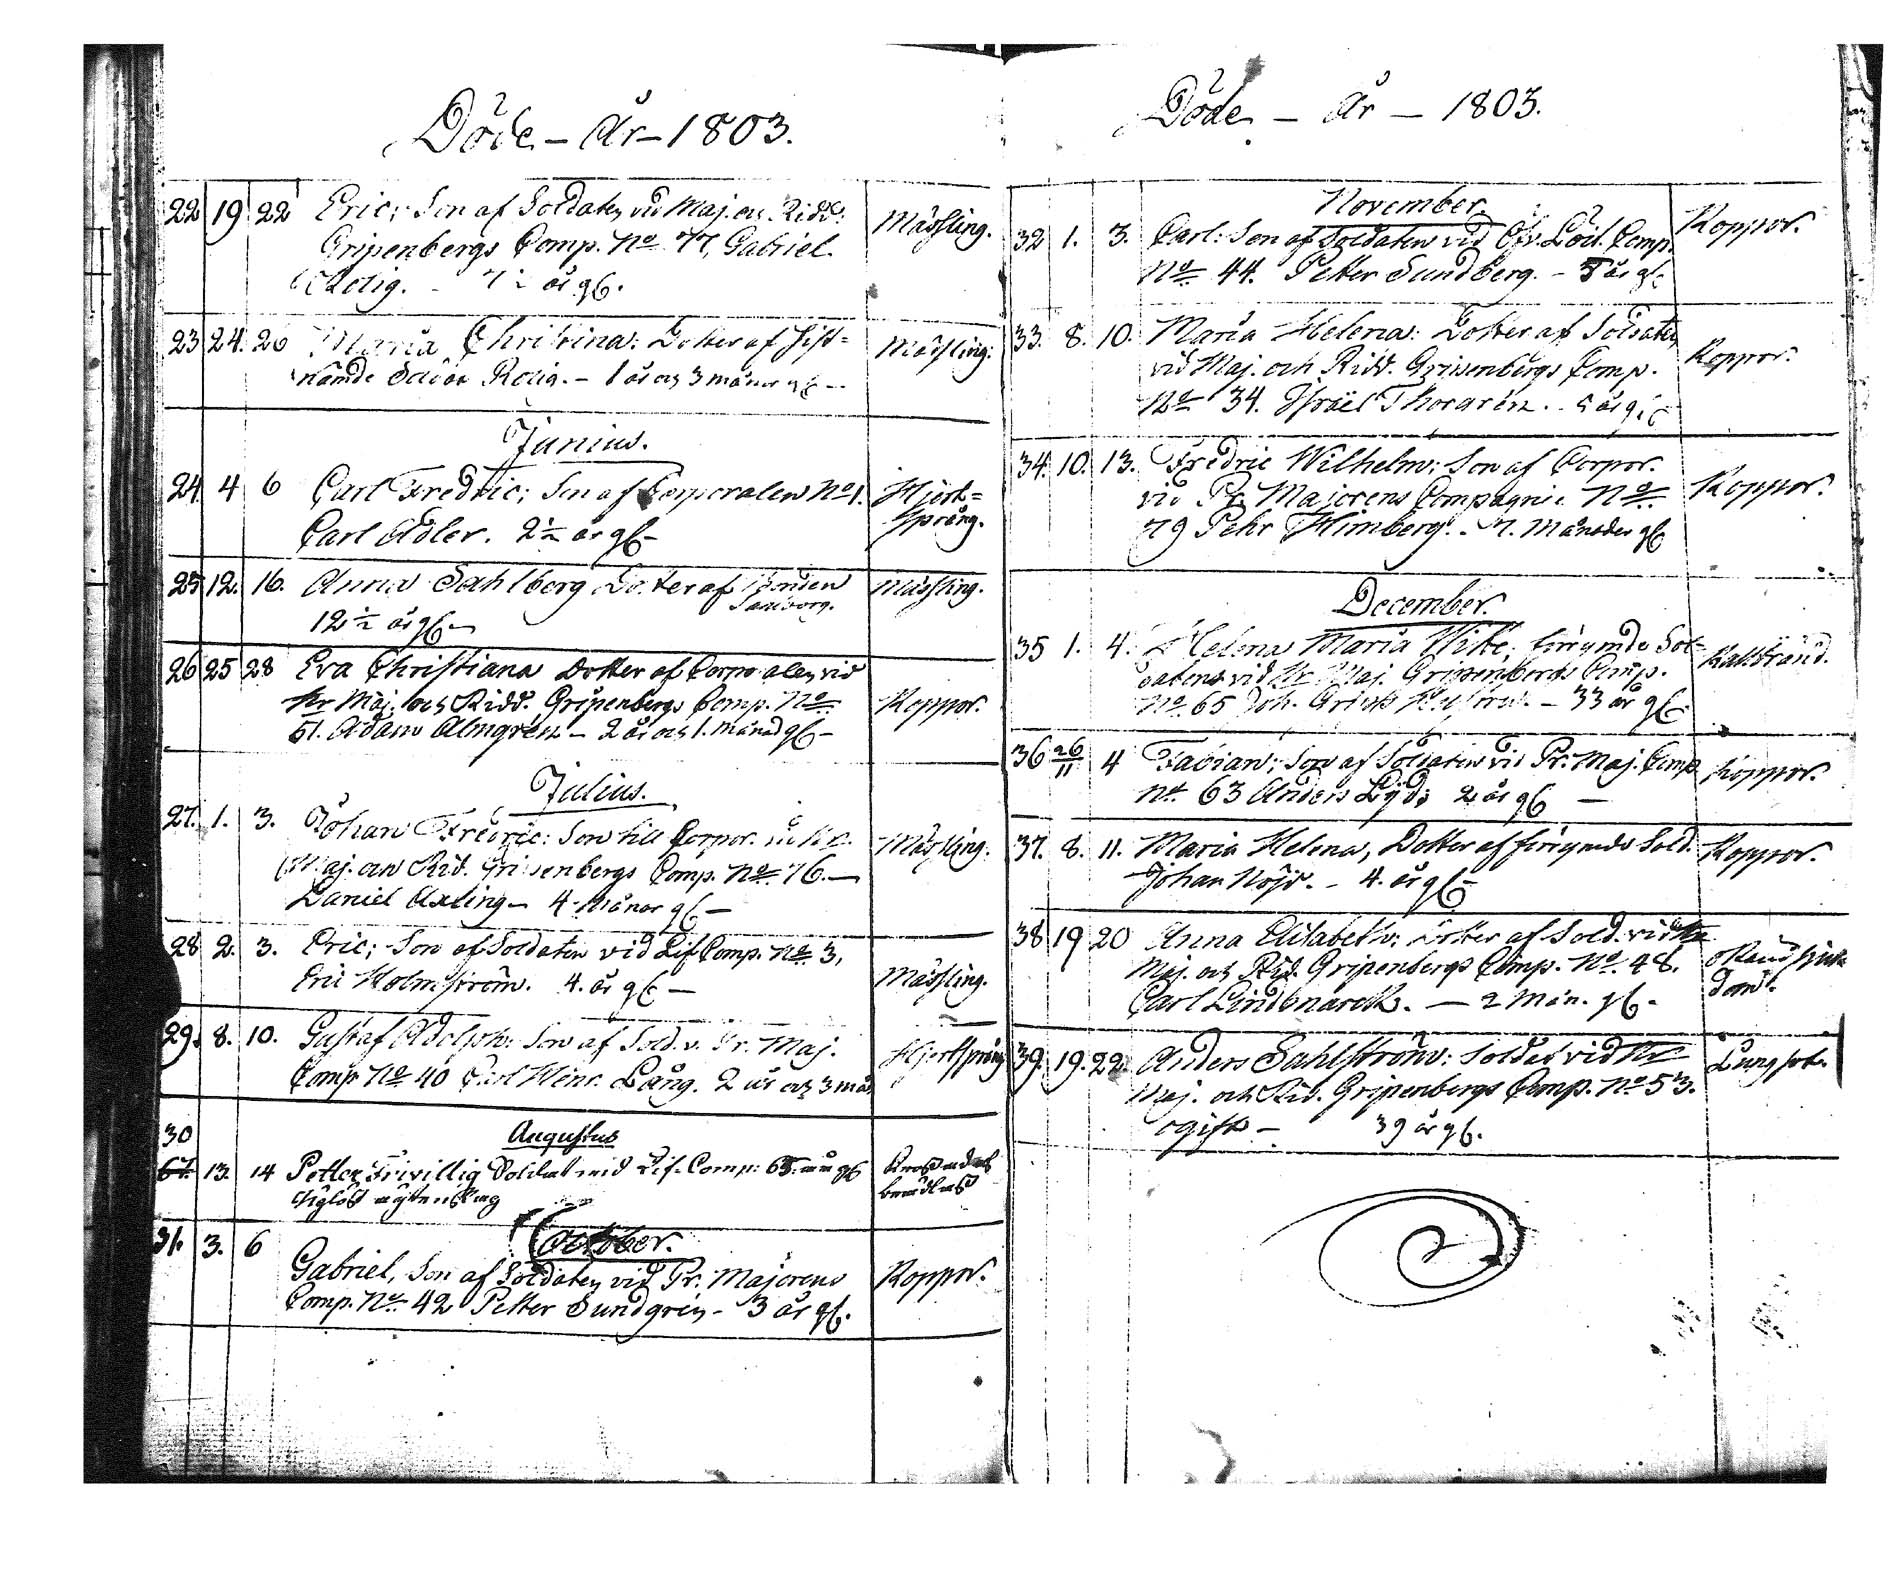 Döde – År – 1803.
22 19 22 Eric; Son af Soldaten vid Maj. och Ridd. Mässling.
Gripenbergs Comp. No 77, Gabriel
Rolig. – 7½ år gl.
23 24. 26 Maria Christina: Dotter af sist= Mässling.
nämde Rolig. – 1 år och 3 månar gl –
Junius.
24 4 6 Carl Fredric; Son af Corporalen No 1. Hjert=
Carl Adler. 2½ år gl – språng.
25 12. 16. Anna Sahlberg Dotter af Mässling.
12½ år gl –
26 25 28 Eva Christiana Dotter af Corporalen vid
Hr Maj. och Ridd. Gripenbergs Comp. No Koppor.
51. Adam Almgrén – 2 år och 1. månad gl –
Julius.
27. 1. 3. Johan Fredric: Son till Corpor. Mässling.
Maj. och Rid. Gripenbergs Comp. No 76. –
Daniel Axling – 4 månar gl –
28 2. 3. Eric; Son af Soldaten vid Lif Comp. No 3,
Eric Holmström. 4. år gl – Mässling.
29. 8. 10. Gustaf Adolph: Son af Sold. v. Pr. Maj. Hjertsprång
Comp. No 40 Carl Hinr. Lång. 2 år och 3 mån
30 Augustus
67. 13. 14 Petter Frivillig Soldat vid Lif-Comp: 65. gl
31. 3. 6 October.
Gabriel, Son af Soldaten vid Pr. Majorens Koppor.
Comp. No 42 Petter Sundgrén – 3 år gl.
Döde – År – 1803.
November.
32 1. 3. Carl: Son af Soldaten vid Öfv. Löit. Comp. Koppor.
No 44. Petter Sundberg. – 5 år gl.
33. 8. 10. Maria Helena: Dotter af Soldaten
vid Maj. och Ridd. Gripenbergs Comp. Koppor.
No 34. Israël Thorgrén. – 5 år gl
34. 10. 13. Fredric Wilhelm: Son af Corpor.
vid Pr. Majorens Compagnie No Koppor.
79 Pehr Himberg. – 7. Månader gl
December.
35 1. 4. Helena Maria Wite, Sol= Kallbrand.
datens vid Hr Maj. Gripenbergs Comp.
No 65 Joh. – 33 år gl.
36 26/11 4 Fabian; Son af Soldaten vid Pr. Maj. Comp. Koppor.
No 63 Anders Lydi 2 år gl –
37. 8. 11. Maria Helena, Dotter af Sold. Koppor.
Johan Nöjd. – 4. år gl –
38 19 20 Anna Elisabeth: Dotter af Sold. vid Hr
Maj. och Rid. Gripenbergs Comp. No 48.
Carl Lindbnarck. – 2 Mån. gl –
39. 19. 22. Anders Sahlström: Soldat vid Hr Lungsot.
Maj. och Rid. Gripenbergs Comp. No 53.
ogift – 39 år gl.